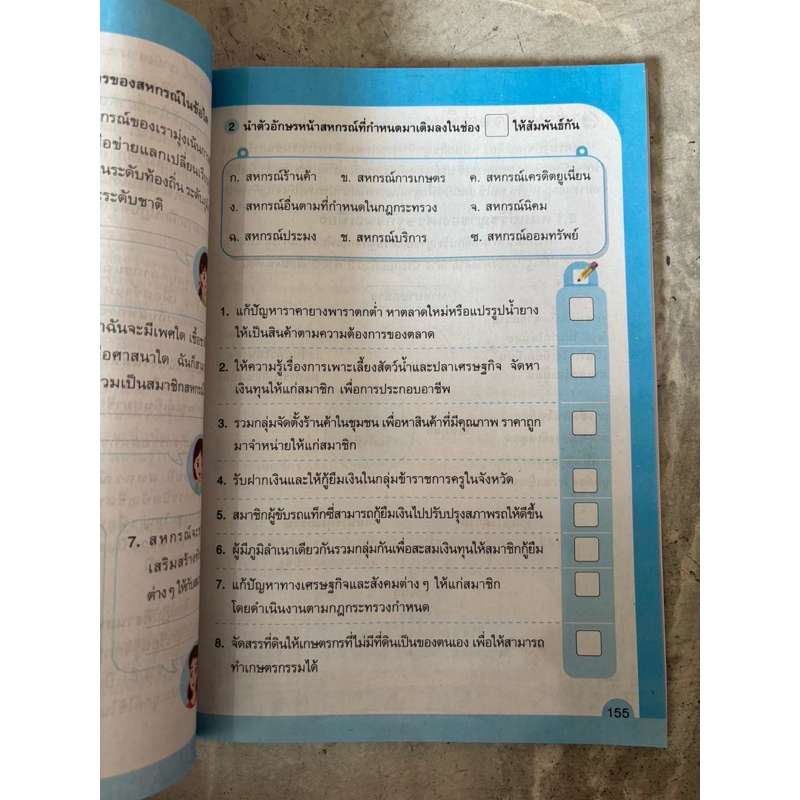 รของสหกรณ์ในข้อใด
กรณ์ของเรามุ่งเน้น
อข่ายแลกเปลี่ยนเรีย
นระดับท้องถิ่น ระดับภู
ะระดับชาติ
าฉันจะมีเพศใด เชื้อช
อศาสนาใด ฉันก็
วมเป็นสมาชิกสหกรณ์
7. สหกรณ์จะ
เสริมสร้าง
ต่างๆ ให้กับ
2 นำตัวอักษรหน้าสหกรณ์ที่กำหนดมาเติมลงในช่อง ให้สัมพันธ์กัน
ก. สหกรณ์ร้านค้า ข. สหกรณ์การเกษตร ค. สหกรณ์เครดิตยูเนี่ยน
ง. สหกรณ์อื่นตามที่กำหนดในกฎกระทรวง จ. สหกรณ์นิคม
ฉ. สหกรณ์ประมง ช. สหกรณ์บริการ ซ. สหกรณ์ออมทรัพย์
1. แก้ปัญหาราคายางพาราตกต่ำ หาตลาดใหม่หรือแปรรูปน้ำยาง
ให้เป็นสินค้าตามความต้องการของตลาด
2. ให้ความรู้เรื่องการเพาะเลี้ยงสัตว์น้ำและปลาเศรษฐกิจ จัดหา
เงินทุนให้แก่สมาชิก เพื่อการประกอบอาชีพ
3. รวมกลุ่มจัดตั้งร้านค้าในชุมชน เพื่อหาสินค้าที่มีคุณภาพ ราคาถูก
มาจำหน่ายให้แก่สมาชิก
4. รับฝากเงินและให้กู้ยืมเงินในกลุ่มข้าราชการครูในจังหวัด
5. สมาชิกผู้ขับรถแท็กซี่สามารถกู้ยืมเงินไปปรับปรุงสภาพรถให้ดีขึ้น
6. ผู้มีภูมิลำเนาเดียวกันรวมกลุ่มกันเพื่อสะสมเงินทุนให้สมาชิกกู้ยืม
7. แก้ปัญหาทางเศรษฐกิจและสังคมต่างๆ ให้แก่สมาชิก
โดยดำเนินงานตามกฎกระทรวงกำหนด
8. จัดสรรที่ดินให้เกษตรกรที่ไม่มีที่ดินเป็นของตนเอง เพื่อให้สามารถ
ทำเกษตรกรรมได้
155